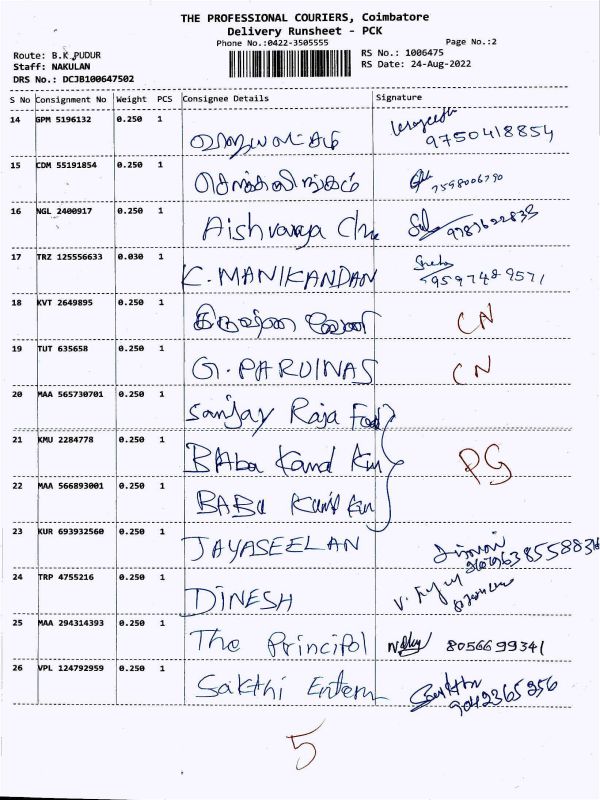 THE PROFESSIONAL COURIERS, Coimbatore
Delivery Runsheet - PCK
Phone No.:0422-3505555 Page No.:2
Route: B.K.PUDUR RS No.: 1006475
Staff: NAKULAN RS Date: 24-Aug-2022
DRS No.: DCJB100647502
S No Consignment No Weight PCS Consignee Details Signature
14 GPM 5196132 0.250 1
9750418854
15 CDM 55191854 0.250 1 செந்தலிங்கம்
7598006790
16 NGL 2400917 0.250 1 Aishvarya
17 TRZ 125556633 0.030 1 K. MANIKANDAN
18 KVT 2649895 0.250 1 CN
19 TUT 635658 0.250 1 G. PARVINAS CN
20 MAA 565730701 0.250 1 Sanjay Raja
21 KMU 2284778 0.250 1 BAba PG
22 MAA 566893001 0.250 1 BABU
23 KUR 693932560 0.250 1 JAYASEELAN
24 TRP 4755216 0.250 1 DINESH
25 MAA 294314393 0.250 1 The Principol 8056699341
26 VPL 124792959 0.250 1 Sakthi Enterp
9042365256
5